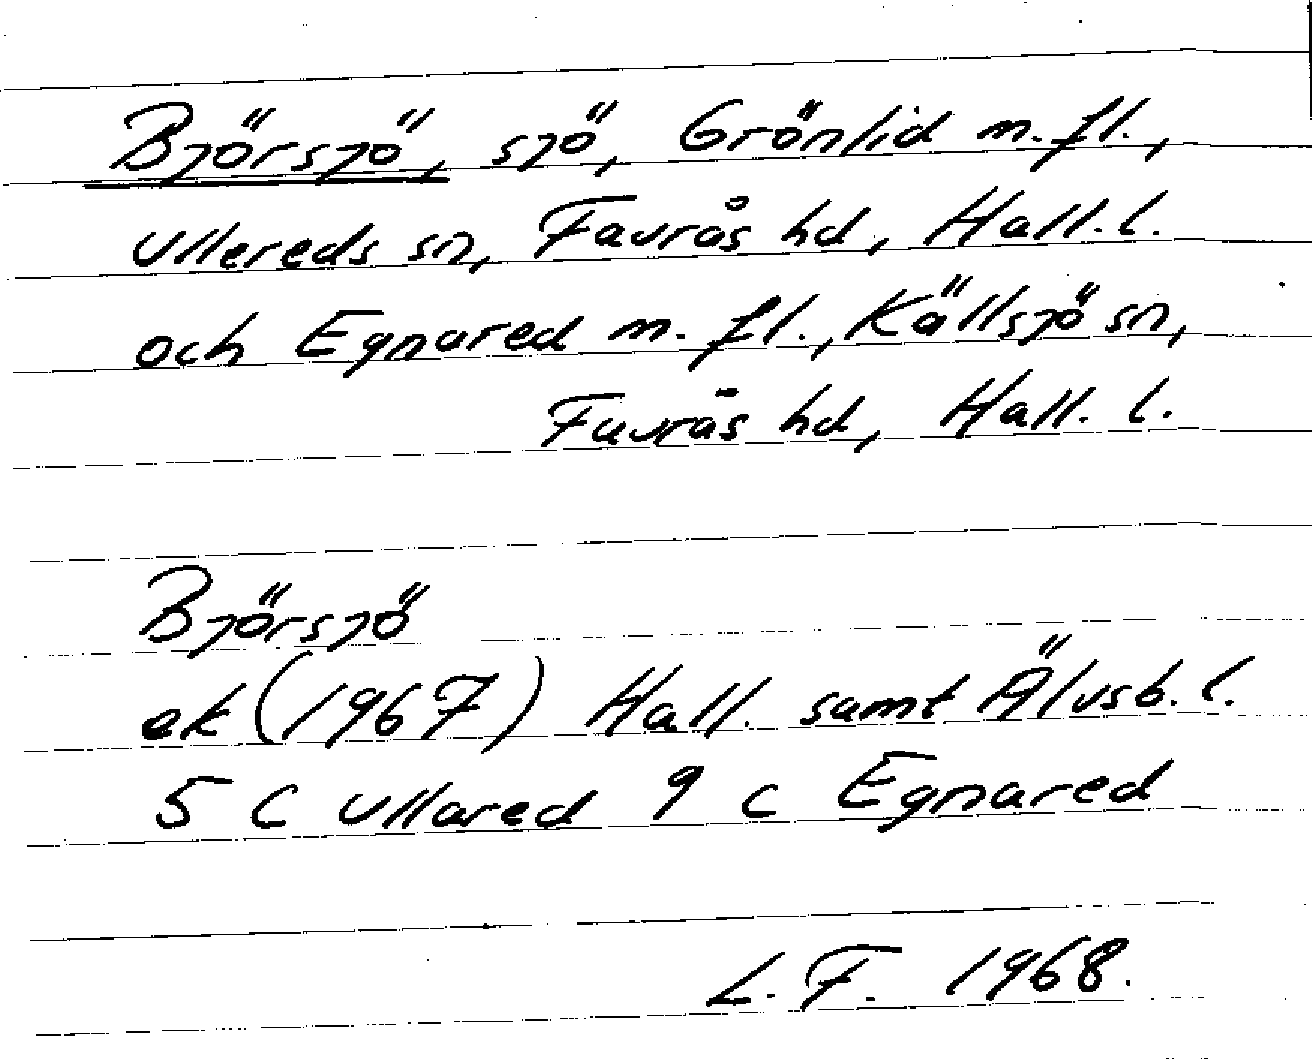 Björsjö, sjö, Grönlid m.fl.,
Ullereds sn, Faurås hd, Hall.l.
och Egnared m.fl., Källsjö sn,
Faurås hd, Hall. l.
Björsjö
ek (1967) Hall. samt Älvsb.l.
5 C Ullared 9 c Egnared
L.F. 1968.